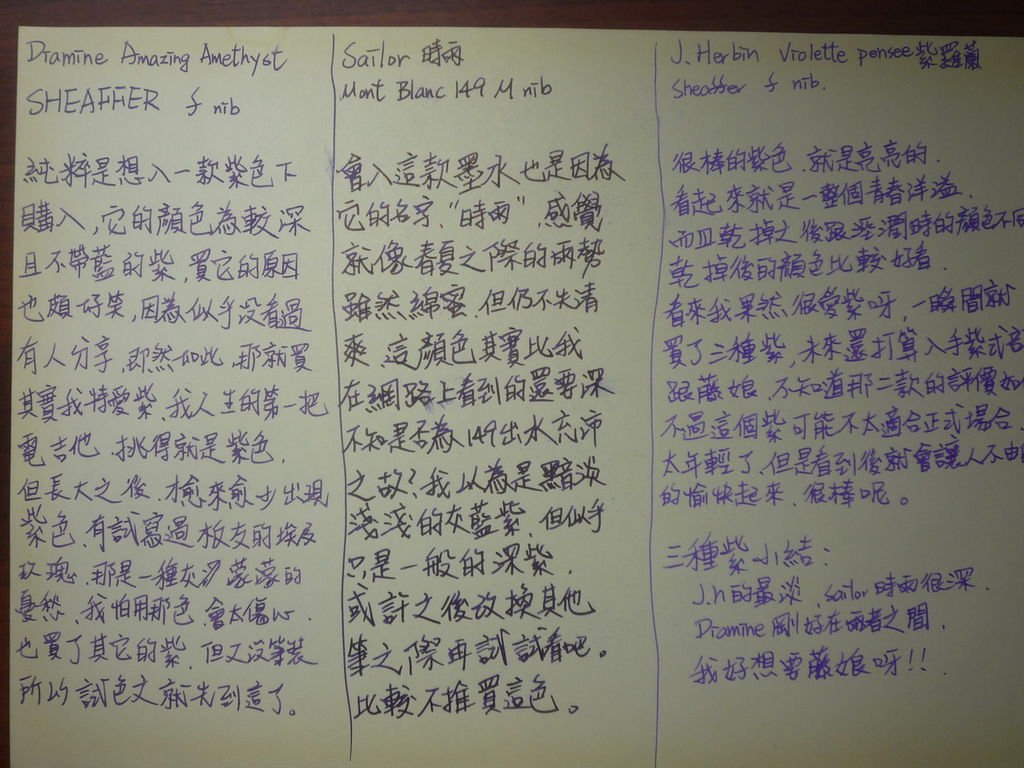 Diamine Amazing Amethyst
SHEAFFER f nib
純粹是想入一款紫色下
購入，它的顏色為較深
且不帶藍的紫，買它的原因
也頗好笑，因為似乎沒看過
有人分享，即然如此，那就買
其實我特愛紫，我人生的第一把
電吉他，挑得就是紫色，
但長大之後，愈來愈少出現
紫色，有試寫過板友的埃及
玫瑰，那是一種灰濛濛的
憂愁，我怕用那色，會太傷心．
也買了其它的紫，但又沒筆裝
所以試色文就先到這了。
Sailor 時雨
Mont Blanc 149 M nib
會入這款墨水，也是因為
它的名字，"時雨"，感覺
就像春夏之際的雨勢
雖然綿蜜，但仍不失清
爽，這顏色其實比我
在網路上看到的還要深
不知是否為149出水充沛
之故？我以為是黯淡
淺淺的灰藍紫，但似乎
只是一般的深紫，
或許之後改換其他
筆之際再試試看吧。
比較不推買這色。
J. Herbin Violette pensee 紫羅蘭
Sheaffer f nib.
很棒的紫色，就是亮亮的．
看起來就是一整個青春洋溢．
而且乾掉之後跟溼潤時的顏色不同
乾掉後的顏色比較好看．
看來我果然很愛紫呀，一瞬間就
買了三種紫，未來還打算入手紫式
跟藤娘，不知道那二款的評價如
不過這個紫可能不太適合正式場合．
太年輕了，但是看到後就會讓人不由
的愉快起來，很棒呢。
三種紫小結：
J.h的最淡，sailor時雨很深．
Diamine剛好在兩者之間．
我好想要藤娘呀！！